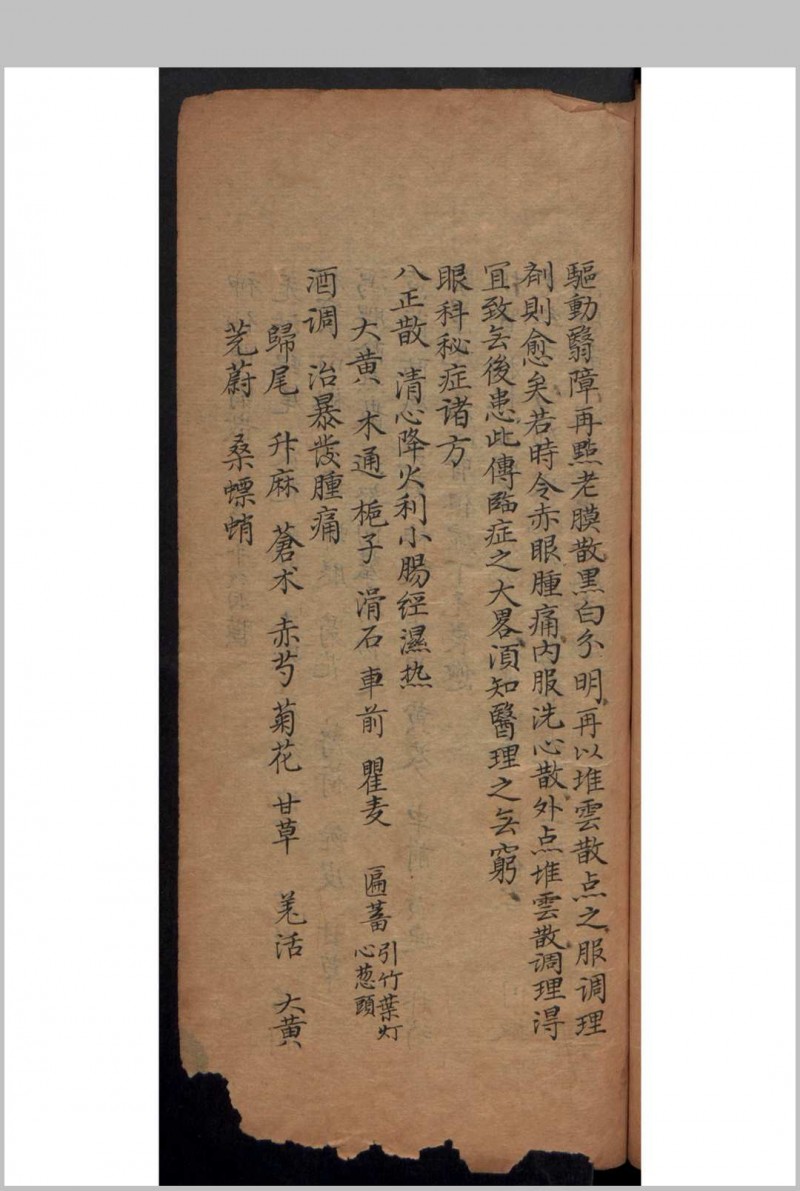 驅動翳障再點老膜散黑白分明再以堆雲散点之服调理
劑則愈矣若時令赤眼腫痛内服洗心散外点堆雲散调理得
冝致无後患此傳臨症之大畧湏知醫理之无窮
眼科秘症诸方
八正散 清心降火利小腸经濕热
大黄 木通 梔子 滑石 車前 瞿麦 匾蓄 引竹葉灯心葱頭
酒调 治暴发腫痛
歸尾 升麻 蒼术 赤芍 菊花 甘草 羌活 大黄
茺蔚 桑螵蛸